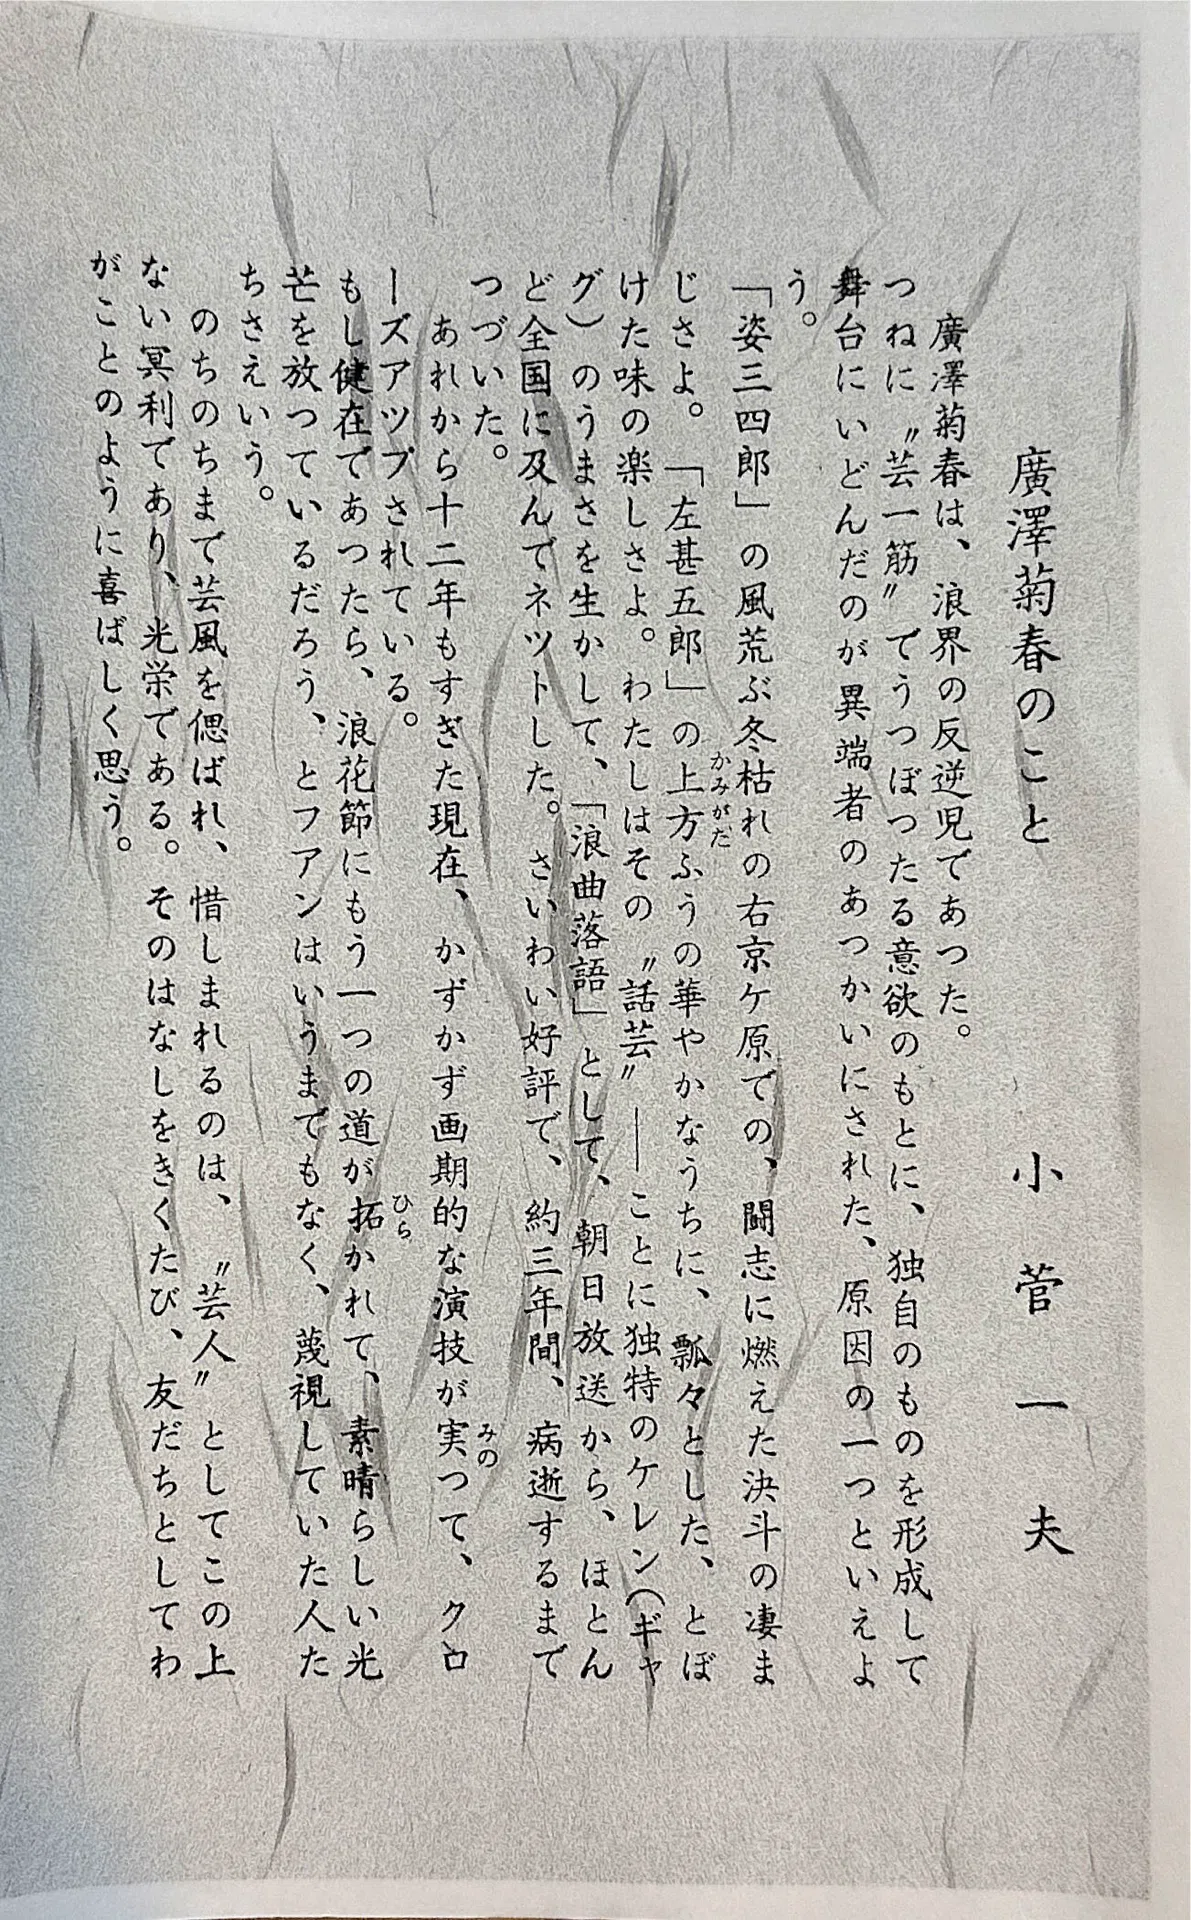 廣澤菊春のこと　小菅一夫
廣澤菊春は、浪界の反逆児であつた。
つねに〝芸一筋〟でうつぼつたる意欲のもとに、独自のものを形成して
舞台にいどんだのが異端者のあつかいにされた、原因の一つといえよ
う。
「姿三四郎」の風荒ぶ冬枯れの右京ケ原での、闘志に燃えた決斗の凄ま
じさよ。「左甚五郎」の上方ふうの華やかなうちに、瓢々とした、とぼ
かみがた
けた味の楽しさよ。わたしはその〝話芸〟――ことに独特のケレン（ギャ
グ）のうまさを生かして、「浪曲落語」として、朝日放送から、ほとん
ど全国に及んでネツトした。さいわい好評で、約三年間、病逝するまで
つづいた。
あれから十二年もすぎた現在、かずかず画期的な演技が実つて、クロ
みの
ーズアツプされている。
もし健在であつたら、浪花節にもう一つの道が拓かれて、素晴らしい光
ひら
芒を放つているだろう、とフアンはいうまでもなく、蔑視していた人た
ちさえいう。
のちのちまで芸風を偲ばれ、惜しまれるのは、〝芸人〟としてこの上
ない冥利であり、光栄である。そのはなしをきくたび、友だちとしてわ
がことのように喜ばしく思う。